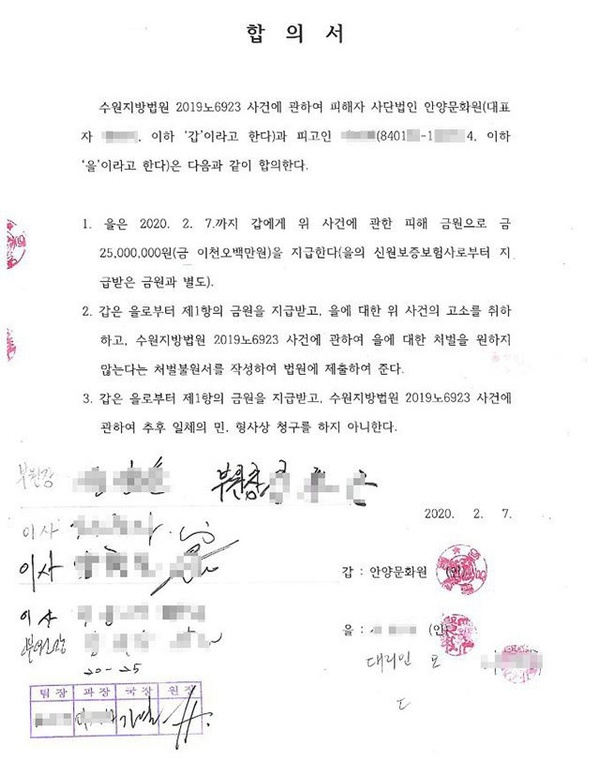 합 의 서
수원지방법원 2019노6923 사건에 관하여 피해자 사단법인 안양문화원(대표
자 . 이하 '갑'이라고 한다)과 피고인 (8401 -1 4. 이하
'을'이라고 한다)은 다음과 같이 합의한다.
1. 을은 2020. 2. 7.까지 갑에게 위 사건에 관한 피해 금원으로 금
25,000,000원(금 이천오백만원)을 지급한다(을의 신원보증보험사로부터 지
급받은 금원과 별도).
2. 갑은 을로부터 제1항의 금원을 지급받고, 을에 대한 위 사건의 고소를 취하
하고, 수원지방법원 2019노6923 사건에 관하여 을에 대한 처벌을 원하지
않는다는 처벌불원서를 작성하여 법원에 제출하여 준다.
3. 갑은 을로부터 제1항의 금원을 지급받고, 수원지방법원 2019노6923 사건에
관하여 추후 일체의 민, 형사상 청구를 하지 아니한다.
부원장 부원장
이사
2020. 2. 7.
이사
갑 : 안양문화원 (인)
이사
을 : (인)
대리인
20-25
팀장 과장 국장 원장